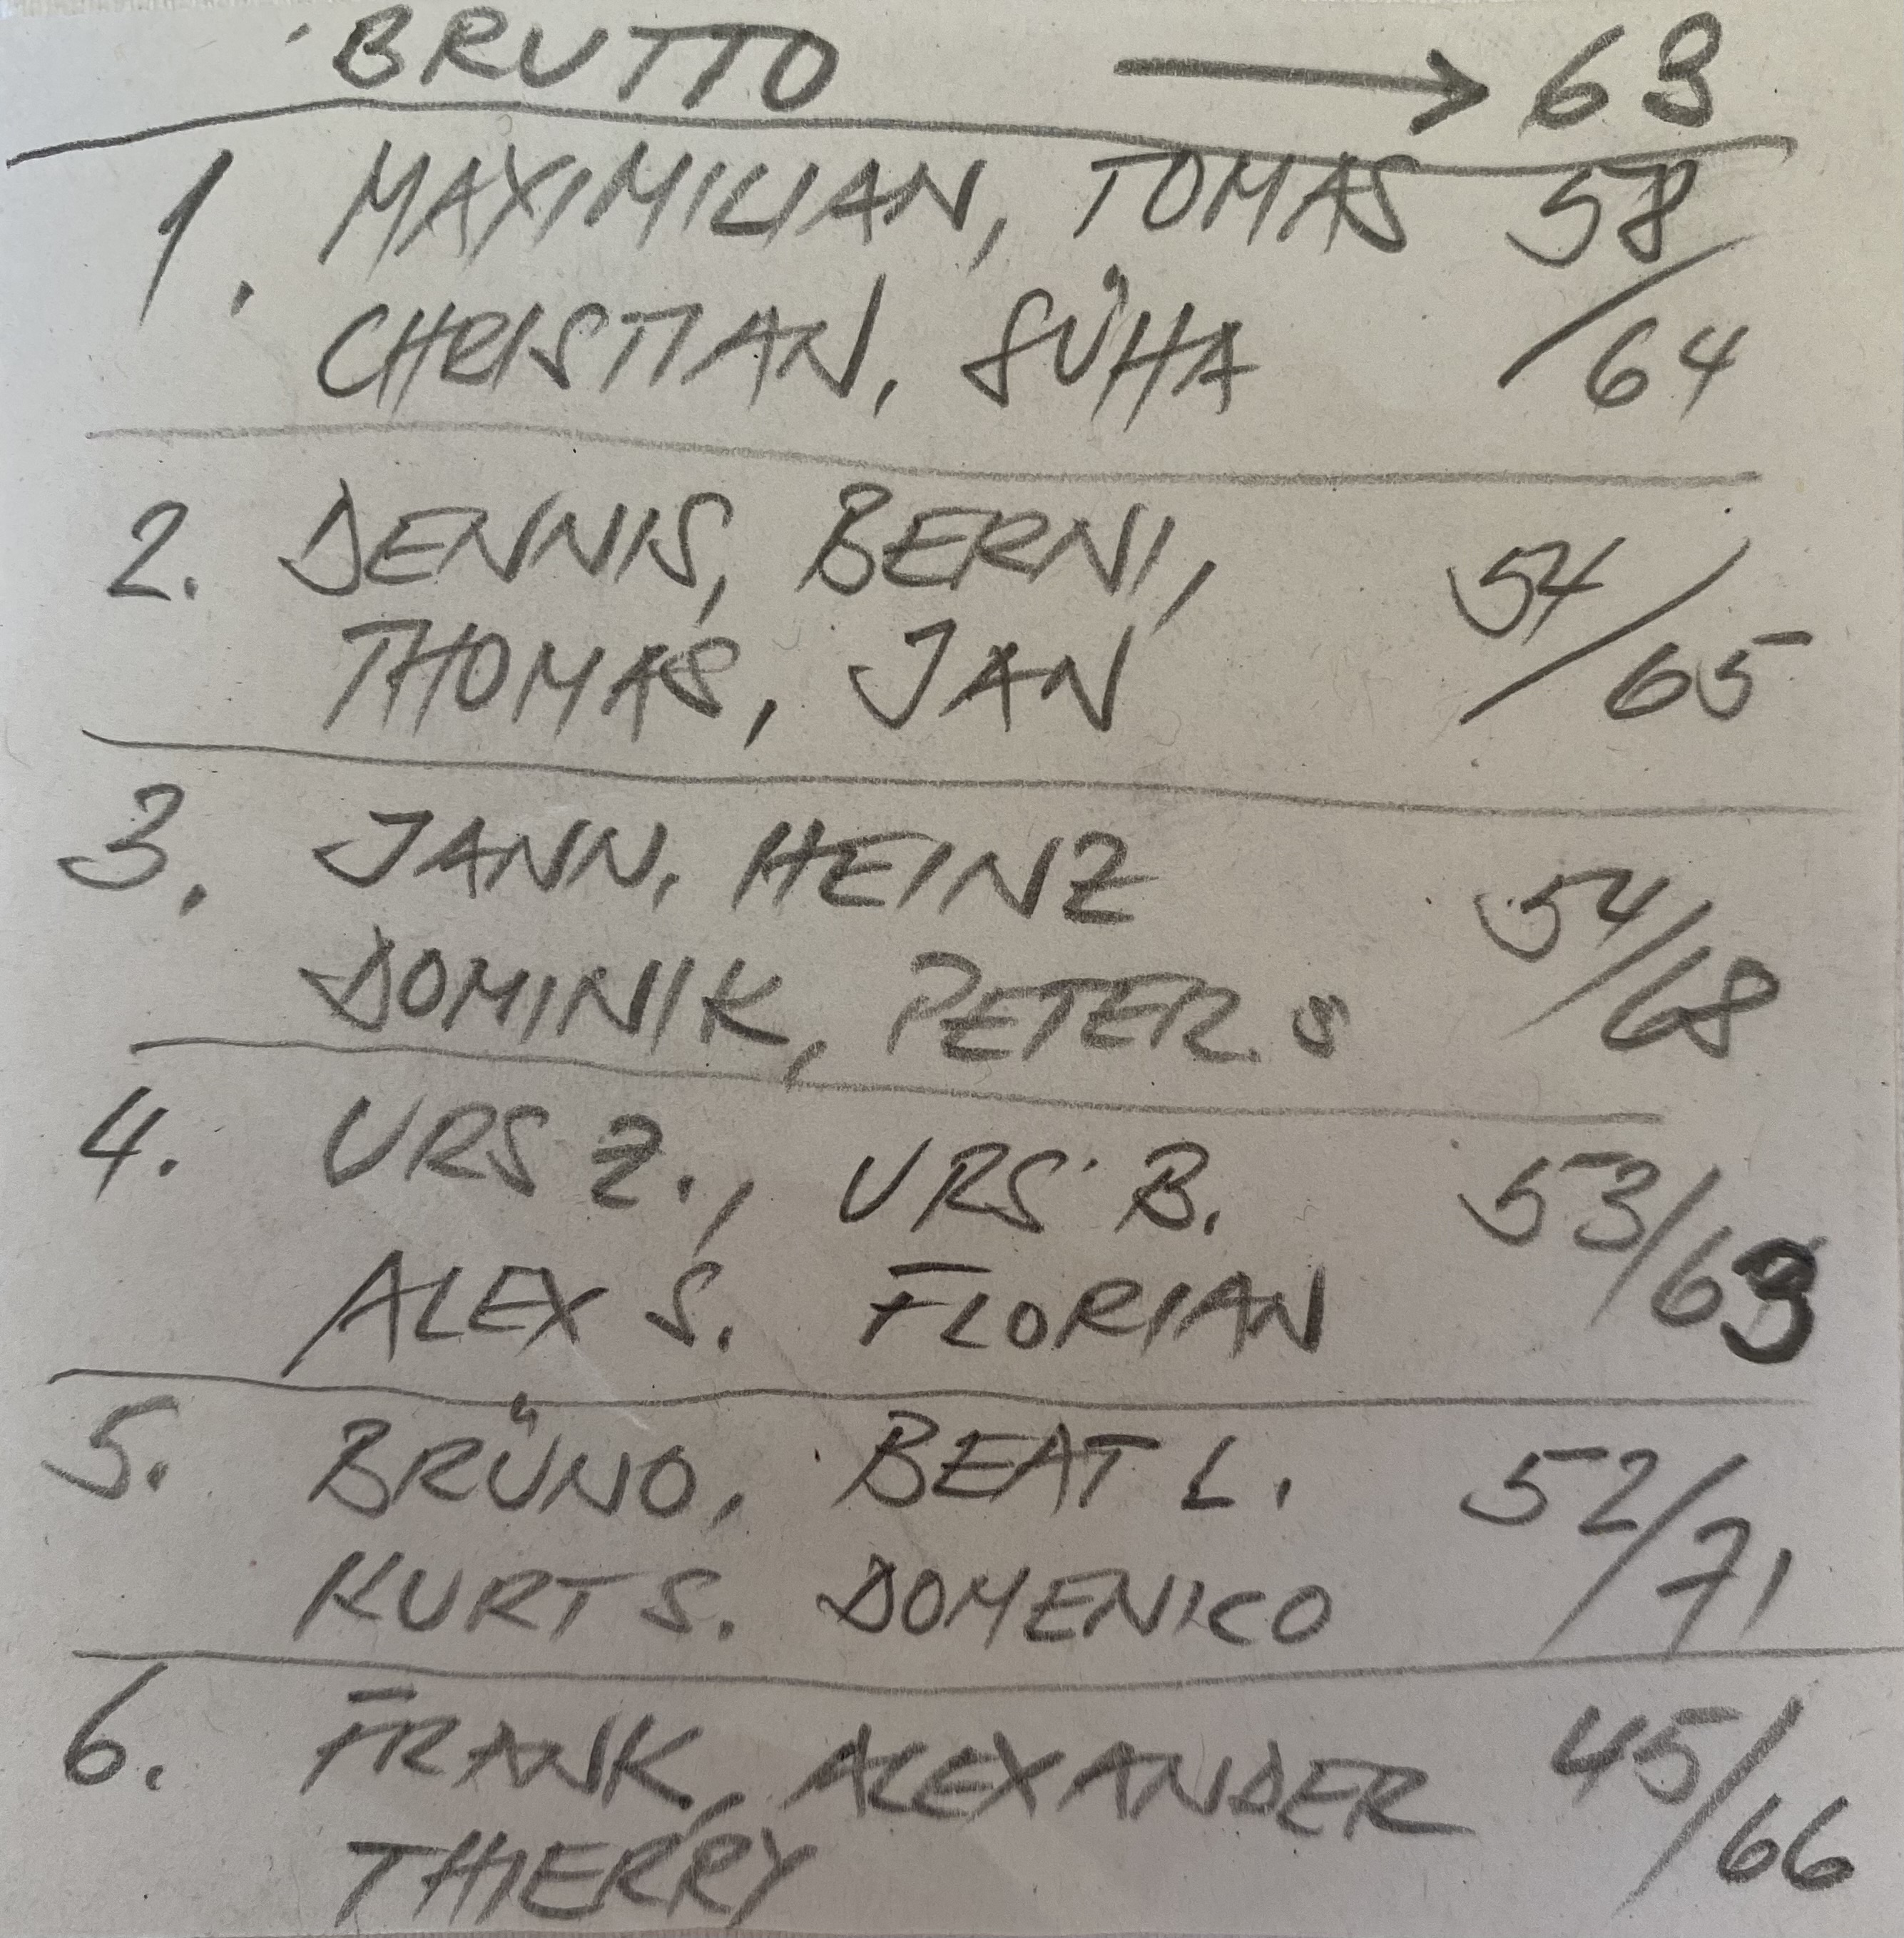 BRUTTO → 63
1. MAXIMILIAN, TOMAS 58/64
CHRISTIAN, SÜHA
2. DENNIS, BERNI, 54/65
THOMAS, JAN
3. JANN, HEINZ 54/68
DOMINIK, PETER S
4. URS Z., URS B. 53/63
ALEX S. FLORIAN
5. BRÜNO, BEAT L. 52/71
KURT S. DOMENICO
6. FRANK, ALEXANDER 45/66
THIERRY